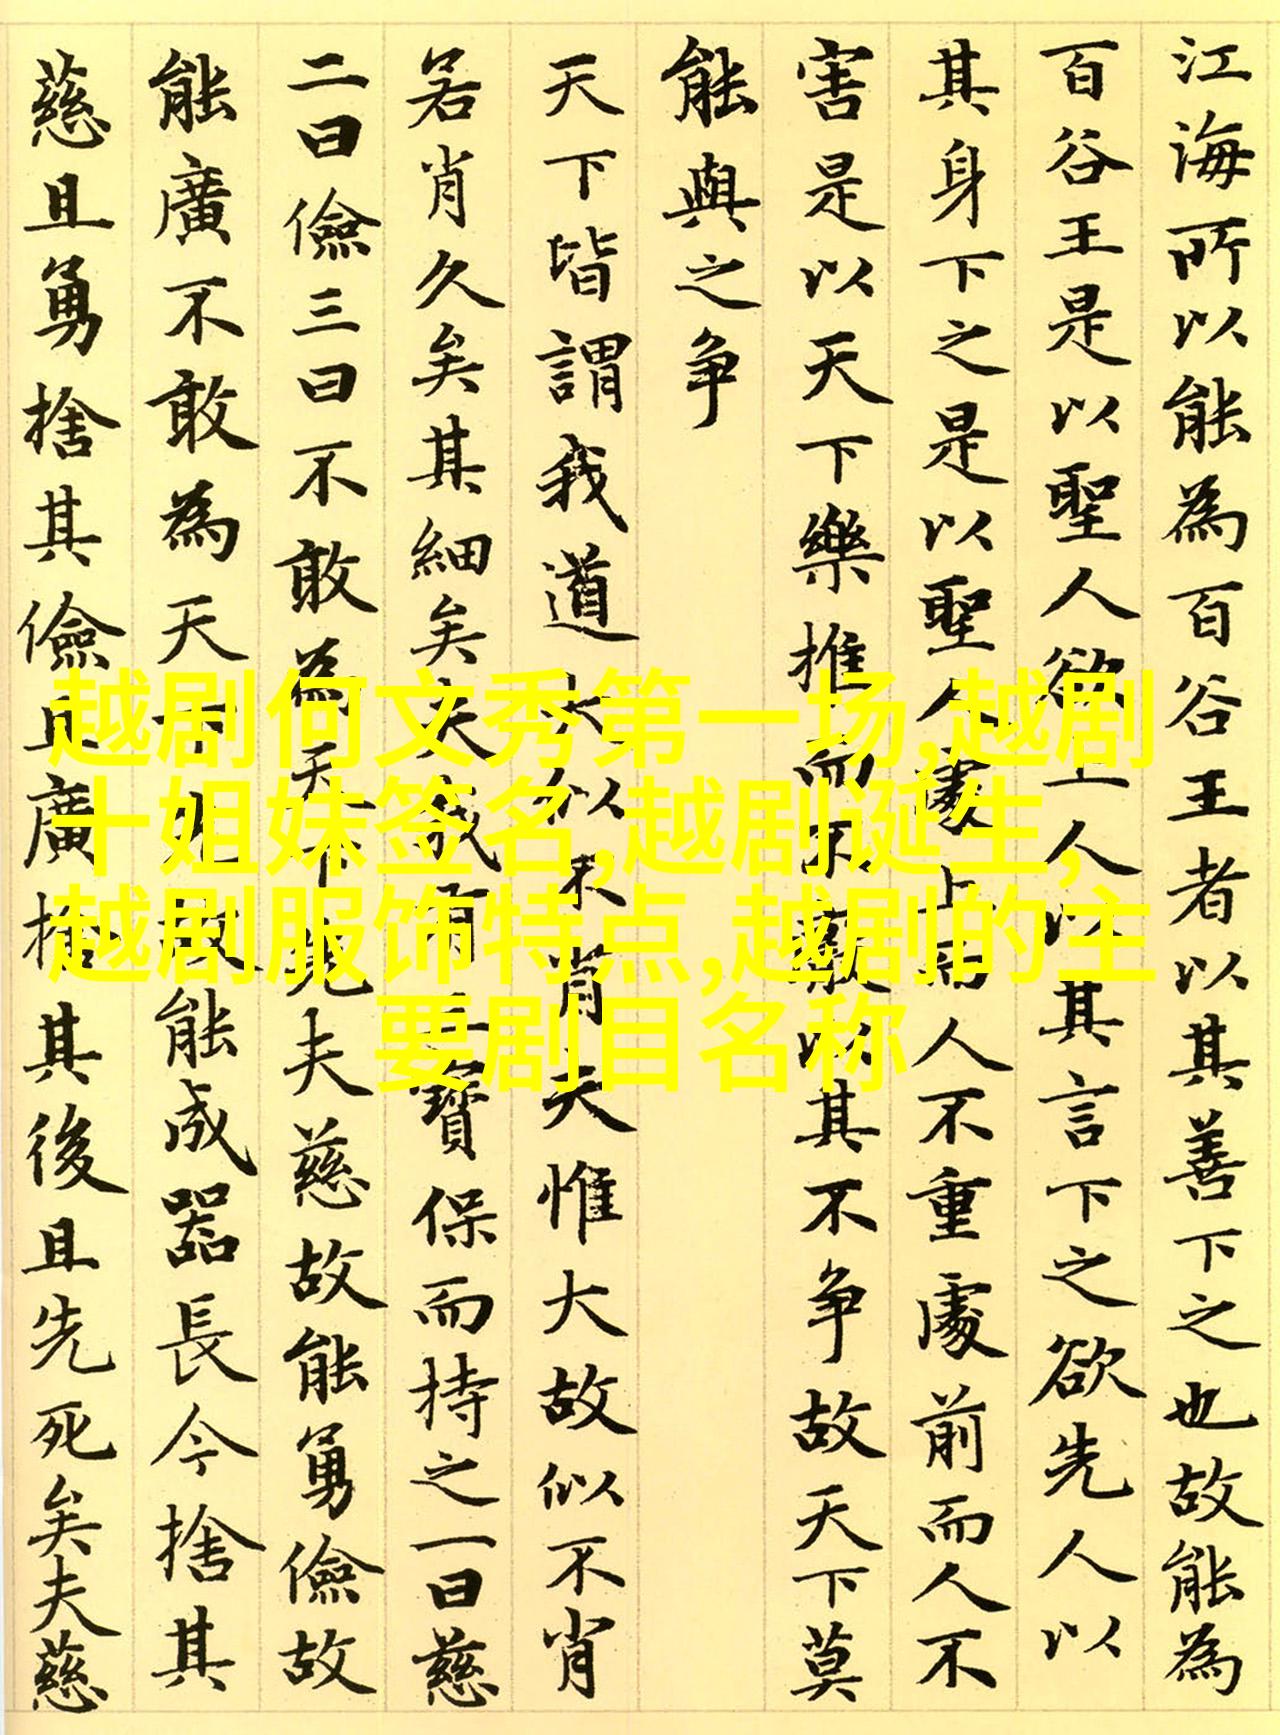 江海所以能為百谷王者以其善下之也故能為
百谷王是以聖人欲上人以其言下之欲先人以
其身下之是以聖人處上而人不重處前而人不
害是以天下樂推而不厭以其不争故天下莫
能與之争
天下皆謂我道大似不肖夫惟大故似不肖
若肖久矣其細矣夫我有三寶保而持之一曰慈
二曰儉三曰不敢為天下先夫慈故能勇儉故
能廣不敢為天下先故能成器長今捨其
慈且勇捨其儉且廣捨其後且先死矣夫慈
越剧何文秀第一场,越剧
十姐妹签名,越剧诞生,
越剧服饰特点,越剧的主
要剧目名称